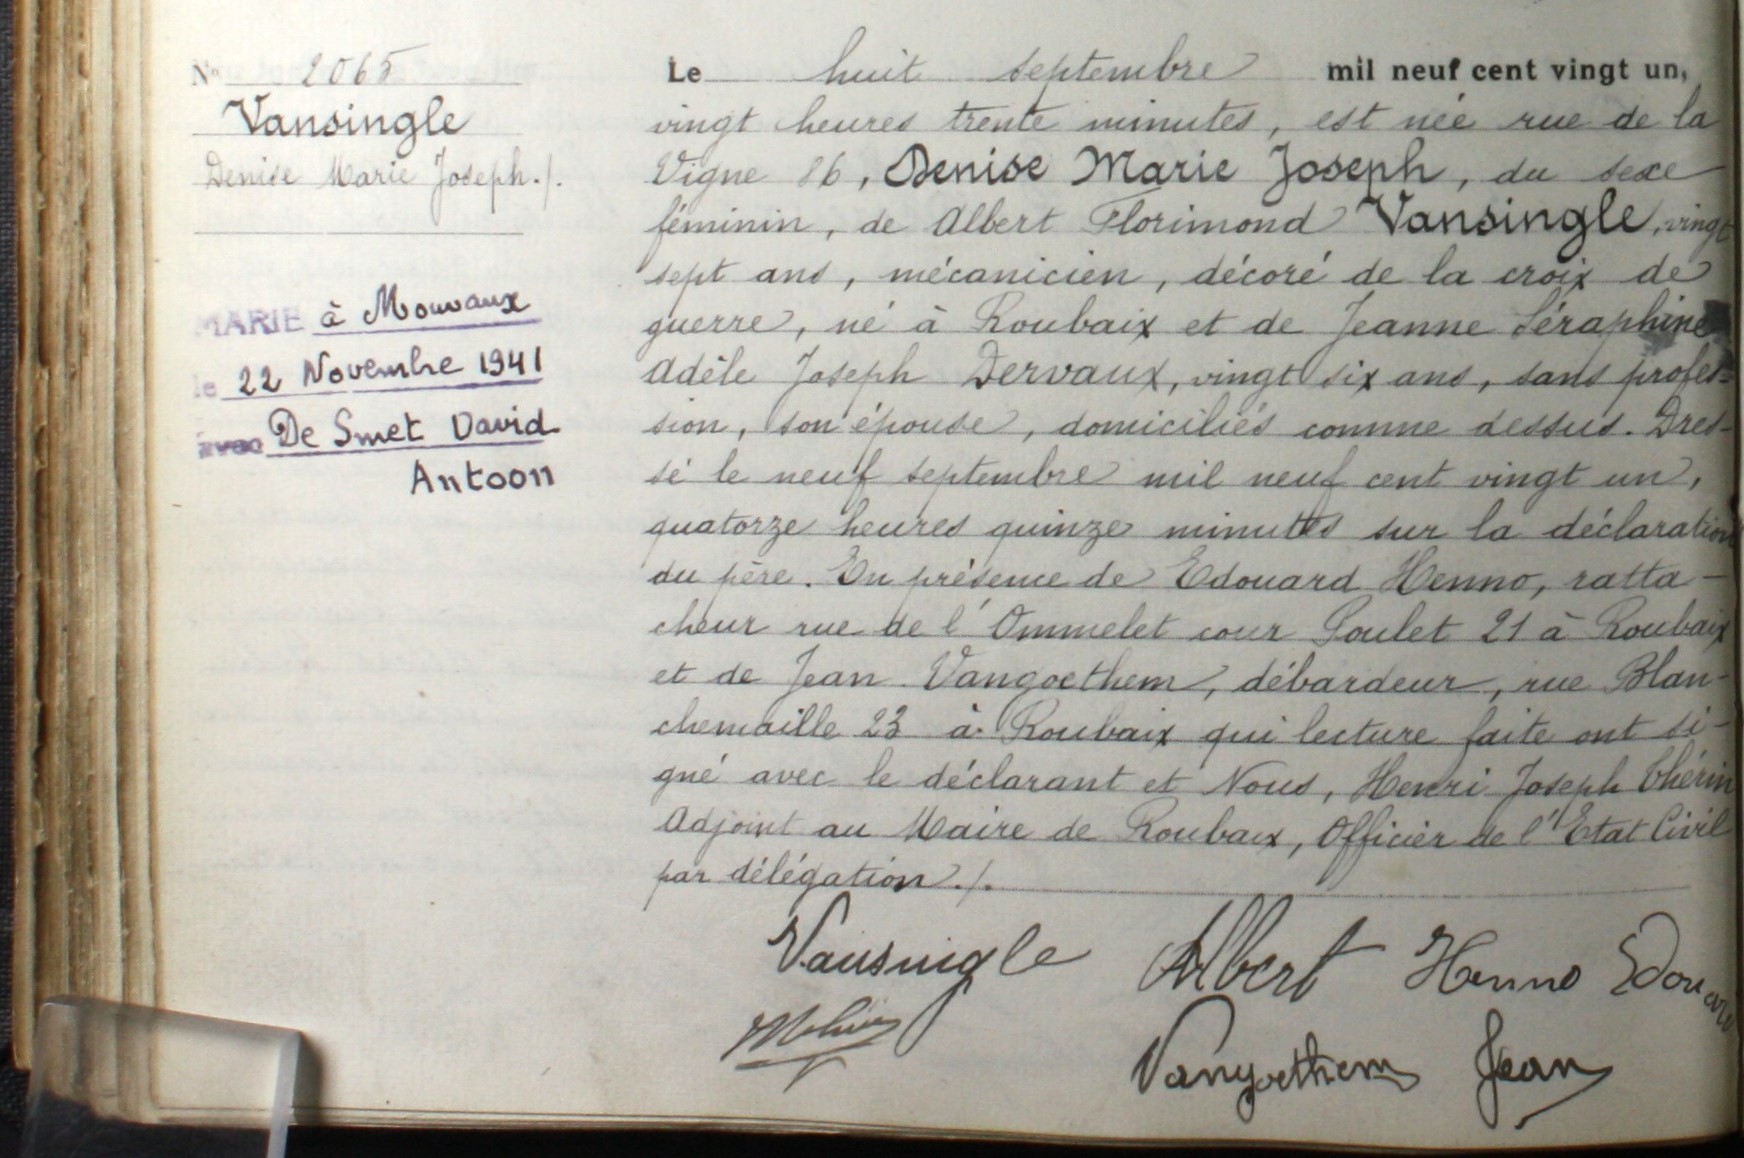 N° 2065
Vansingle
Denise Marie Joseph./.
MARIE à Mouvaux
le 22 Novembre 1941
avec De Smet David
Antoon
Le huit septembre mil neuf cent vingt un,
vingt heures trente minutes, est née rue de la
Vigne 86, Denise Marie Joseph, du sexe
féminin, de Albert Florimond Vansingle, vingt
sept ans, mécanicien, décoré de la croix de
guerre, né à Roubaix et de Jeanne Séraphine
Adèle Joseph Dervaux, vingt six ans, sans profes-
sion, son épouse, domiciliés comme dessus. Dres-
sé le neuf septembre mil neuf cent vingt un,
quatorze heures quinze minutes sur la déclaration
du père. En présence de Edouard Henno, ratta-
cheur rue de l'Ommelet cour Poulet 21 à Roubaix
et de Jean Vangoethem, débardeur, rue Blan-
chemaille 23 à Roubaix qui lecture faite ont si-
gné avec le déclarant et Nous, Henri Joseph Thérin
Adjoint au Maire de Roubaix, Officier de l'Etat Civil
par délégation./.
Vansingle Albert Henno Edouard
Vangoethem Jean